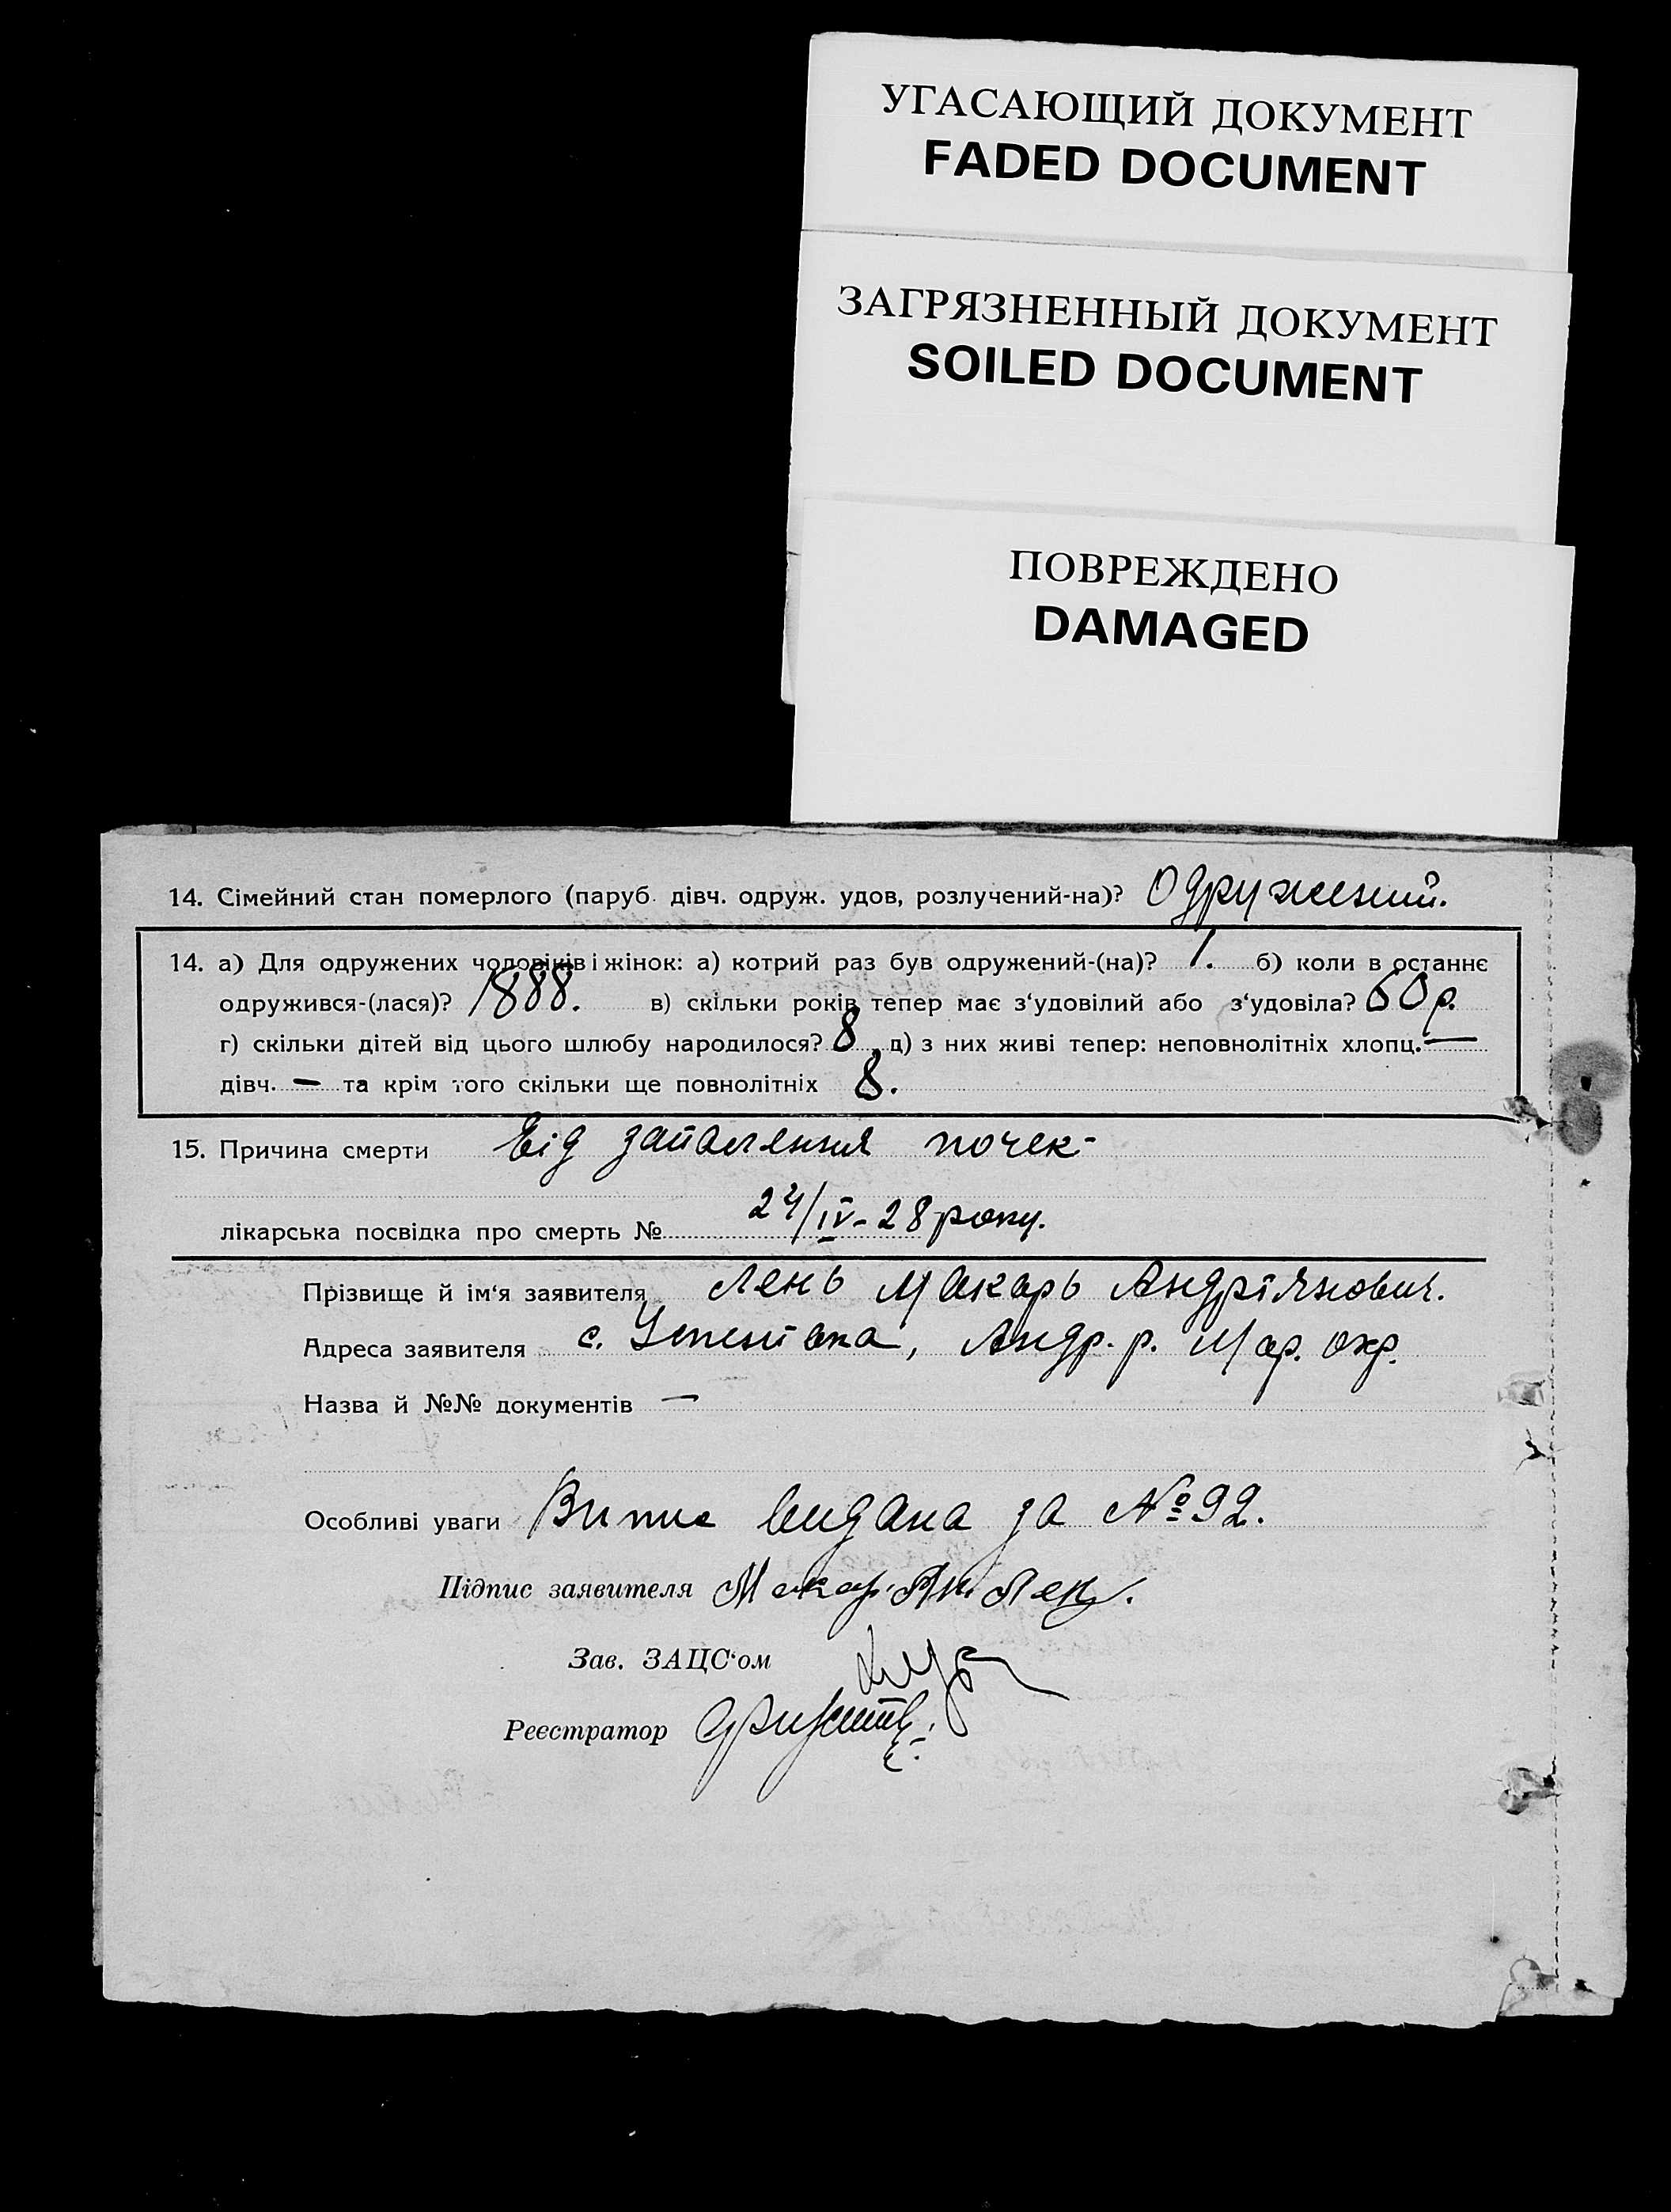 УГАСАЮЩИЙ ДОКУМЕНТ
FADED DOCUMENT
ЗАГРЯЗНЕННЫЙ ДОКУМЕНТ
SOILED DOCUMENT
ПОВРЕЖДЕНО
DAMAGED
14. Сімейний стан померлого (паруб. дівч. одруж. удов, розлучений-на)? Одружений.
14. а) Для одружених чоловіків і жінок: а) котрий раз був одружений-(на)? 1. б) коли в останнє
одружився-(лася)? 1888. в) скільки років тепер має з'удовілий або з'удовіла? 60 р.
г) скільки дітей від цього шлюбу народилося? 8, д) з них живі тепер: неповнолітніх хлопц. —
дівч. — та крім того скільки ще повнолітніх 8.
15. Причина смерти Від запалення почек-
лікарська посвідка про смерть № 24/IV-28 року.
Прізвище й ім'я заявителя Лень Макарь Андріянович.
Адреса заявителя с. Андр. р. Мар. окр.
Назва й №№ документів —
Особливі уваги Випис видана за №92.
Підпис заявителя Макар Ан Лень.
Зав. ЗАЦС'ом
Реєстратор